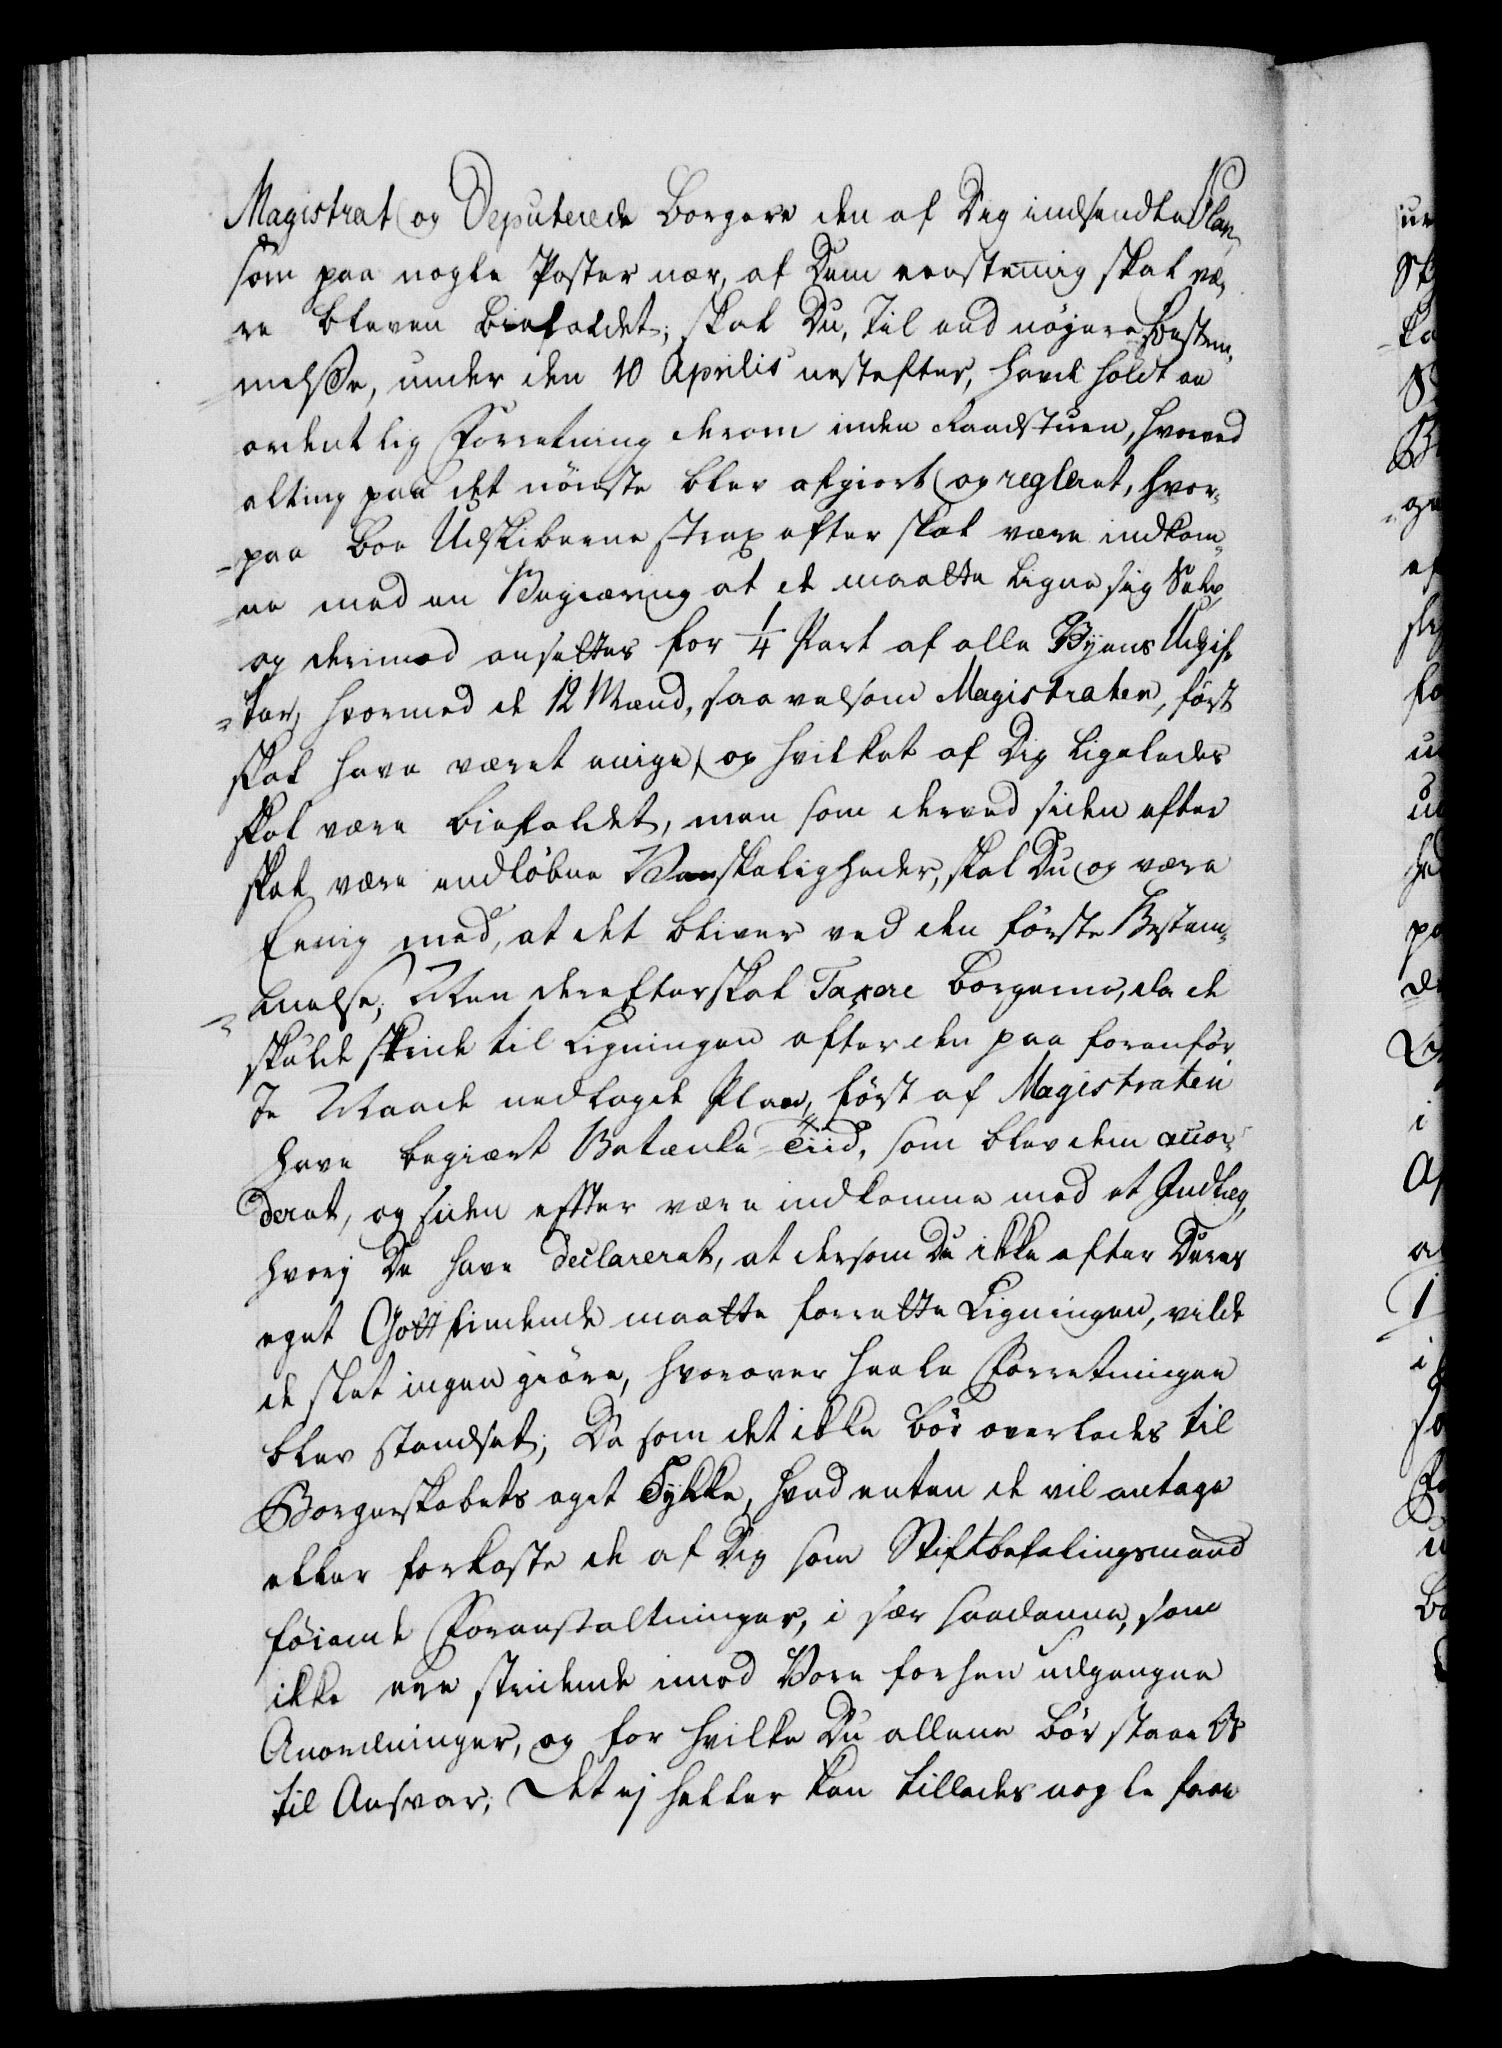 Magistrat og Deputerede Borgere den af Dig indsendte Plan,
som paa nogle Poster nær, af Dem eenstemmig skal væ„
re bleven biefaldet; skal Du, til end nøyere Bestem„
melsse, under den 10 Aprilis nestefter, havde holdt en
ordentlig Forretning derom inden Raadstuen, hvorved
alting paa det nöieste blev afgiort og regleret, hvor„
paa
Udskibere strax efter skal være indkom„
ne med en Begiæring at de maatte ligne sig Selv,
og derimod ansættes for 1/4 Part af alle Byens Udgif„
ter, hvormed de 12 Mænd, saavelsom Magistraten, först
skal have været enige, og hvilket af Dig ligeledes
skal være biefaldet, men som derved siden efter
skal være indløbne Vanskeligheder, skal Du og være
Eenig med, at det bliver ved den første Bestem„
melse; Men derefter skal Taxere borgerne, da de
skulde skride til Ligningen efter den paa foranför„
te Maade nedlagde Plan, först af Magistraten
have begiært Betænke-Tiid, som blev dem accor„
deret, og siden efter være indkomne med et Indlæg,
hvorj De have declareret, at dersom De ikke efter Deres
eget Gottfindende maatte forrette Ligningen, vilde
de slet ingen giöre, hvorover heele Forretningen
blev standset; Da som det ikke bör overlades til
Borgerskabets eget Tykke, hvad enten de vil antage
eller forkaste de af Dig som Stiftbefalingsmand
föiende Foranstaltninger, i sær saadanne, som
ikke ere stridende imod Vore forhen udgangne
Anordninger, og for hvilke Du allene bör staae Os
til Ansvar; Det ej heller kan tillades nogle faae